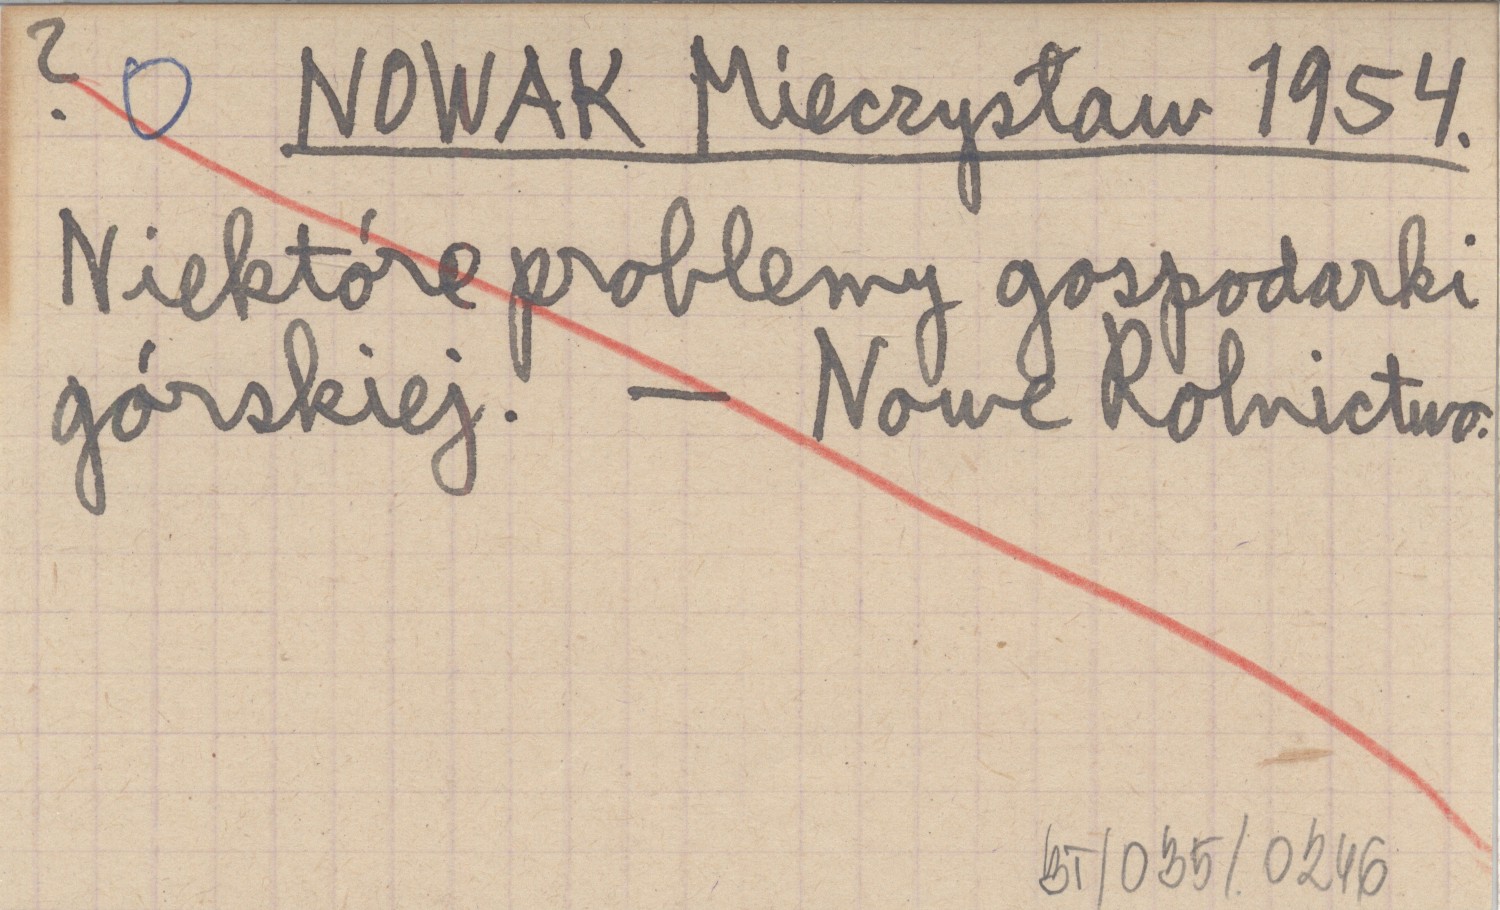 ? O NOWAK Mieczysław 1954.
Niektóre problemy gospodarki
górskiej. — Nowe Rolnictwo.
BT/035/0246